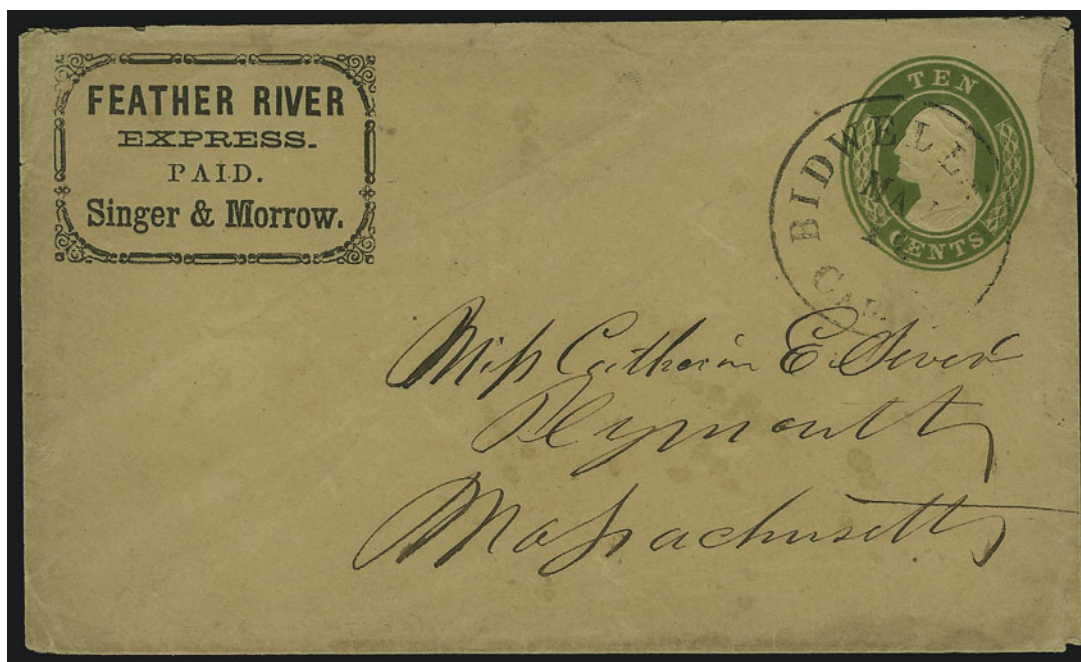 FEATHER RIVER
EXPRESS.
PAID.
Singer & Morrow.
TEN
CENTS
BIDWELL
CAL.
Miss Catherin E. Sever
Plymouth
Massachusetts